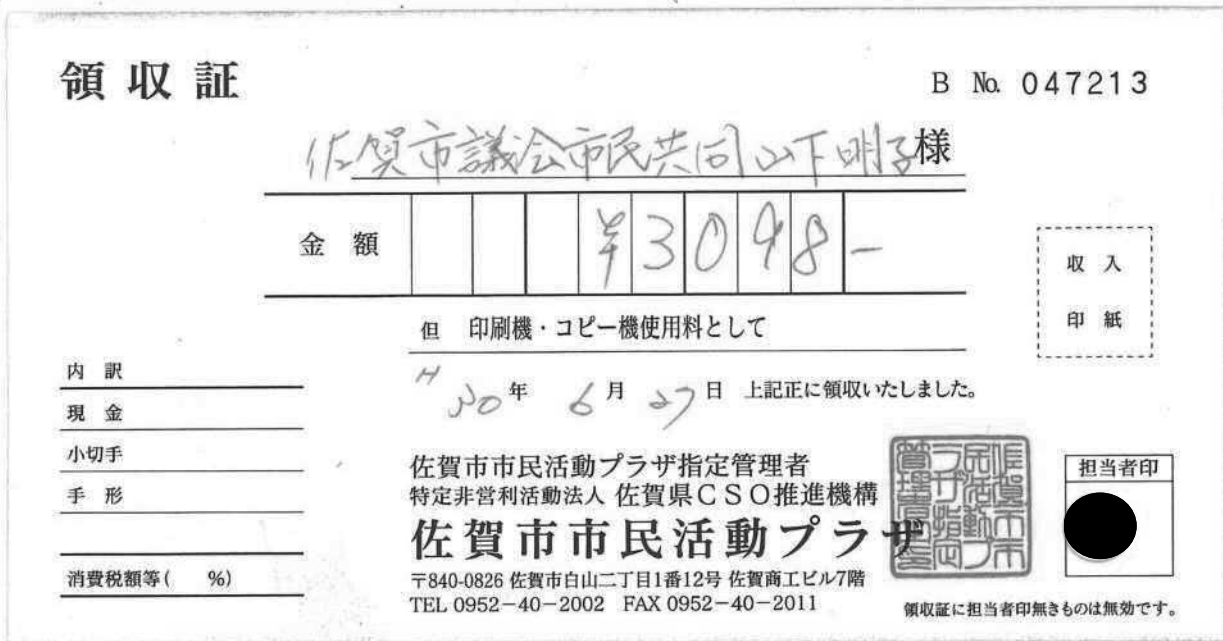 領収証
B No. 047213
佐賀市議会市民共同 山下明子様
金額 ¥3098-
収入
印紙
但 印刷機・コピー機使用料として
H30年 6月 27日 上記正に領収いたしました。
内訳
現金
小切手
手形
消費税額等( %)
佐賀市市民活動プラザ指定管理者
特定非営利活動法人 佐賀県CSO推進機構
佐賀市市民活動プラザ
〒840-0826 佐賀市白山二丁目1番12号 佐賀商工ビル7階
TEL 0952-40-2002 FAX 0952-40-2011
担当者印
領収証に担当者印無きものは無効です。